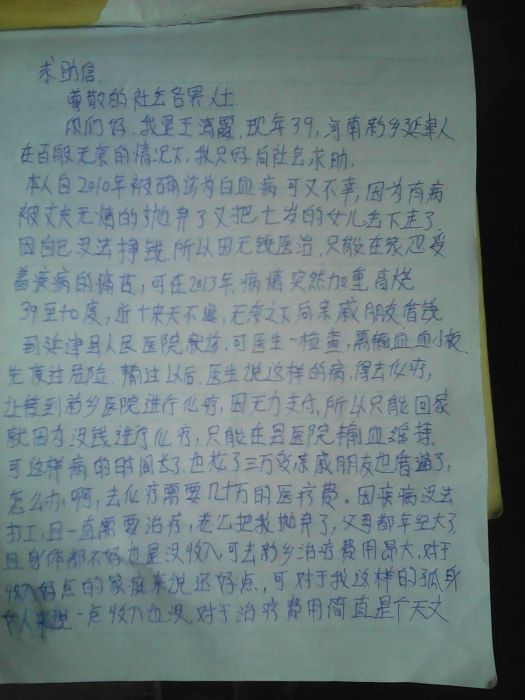 求助信
尊敬的社会各界人士
你们好.我是王清霞.现年39,河南新乡延津人
在百般无奈的情况下,我只好向社会求助.
本人自2010年被确诊为白血病可又不幸,因为有病
被丈夫无情的抛弃了又把七岁的女儿丢下走了
因自己没法挣钱.所以因无钱医治,只能在家忍受
着疾病的痛苦,可在2013年病情突然加重高烧
39至40度,近十来天不退,无奈之下向亲戚朋友借钱
到延津县人民医院就诊,可医生一检查,需输血血小板
先度过危险.输过以后.医生说这样的病,得去化疗,
让转到新乡医院进行化疗,因无力支付.所以只能回家
就因为没钱进行化疗,只能在县医院输血维持
可这样病的时间长了.也花了三万多亲戚朋友也借遍了,
怎么办啊,去化疗需要几十万的医疗费.因疾病没法
打工,且一直需要治疗,老公把我抛弃了,父母都年纪大了
且身体都不好也是没收入,可去新乡治疗费用昂大,对于
收入好点的家庭来说还好点,可对于我这样的孤身
女人来说一点收入也没.对于治疗费用简直是个天文